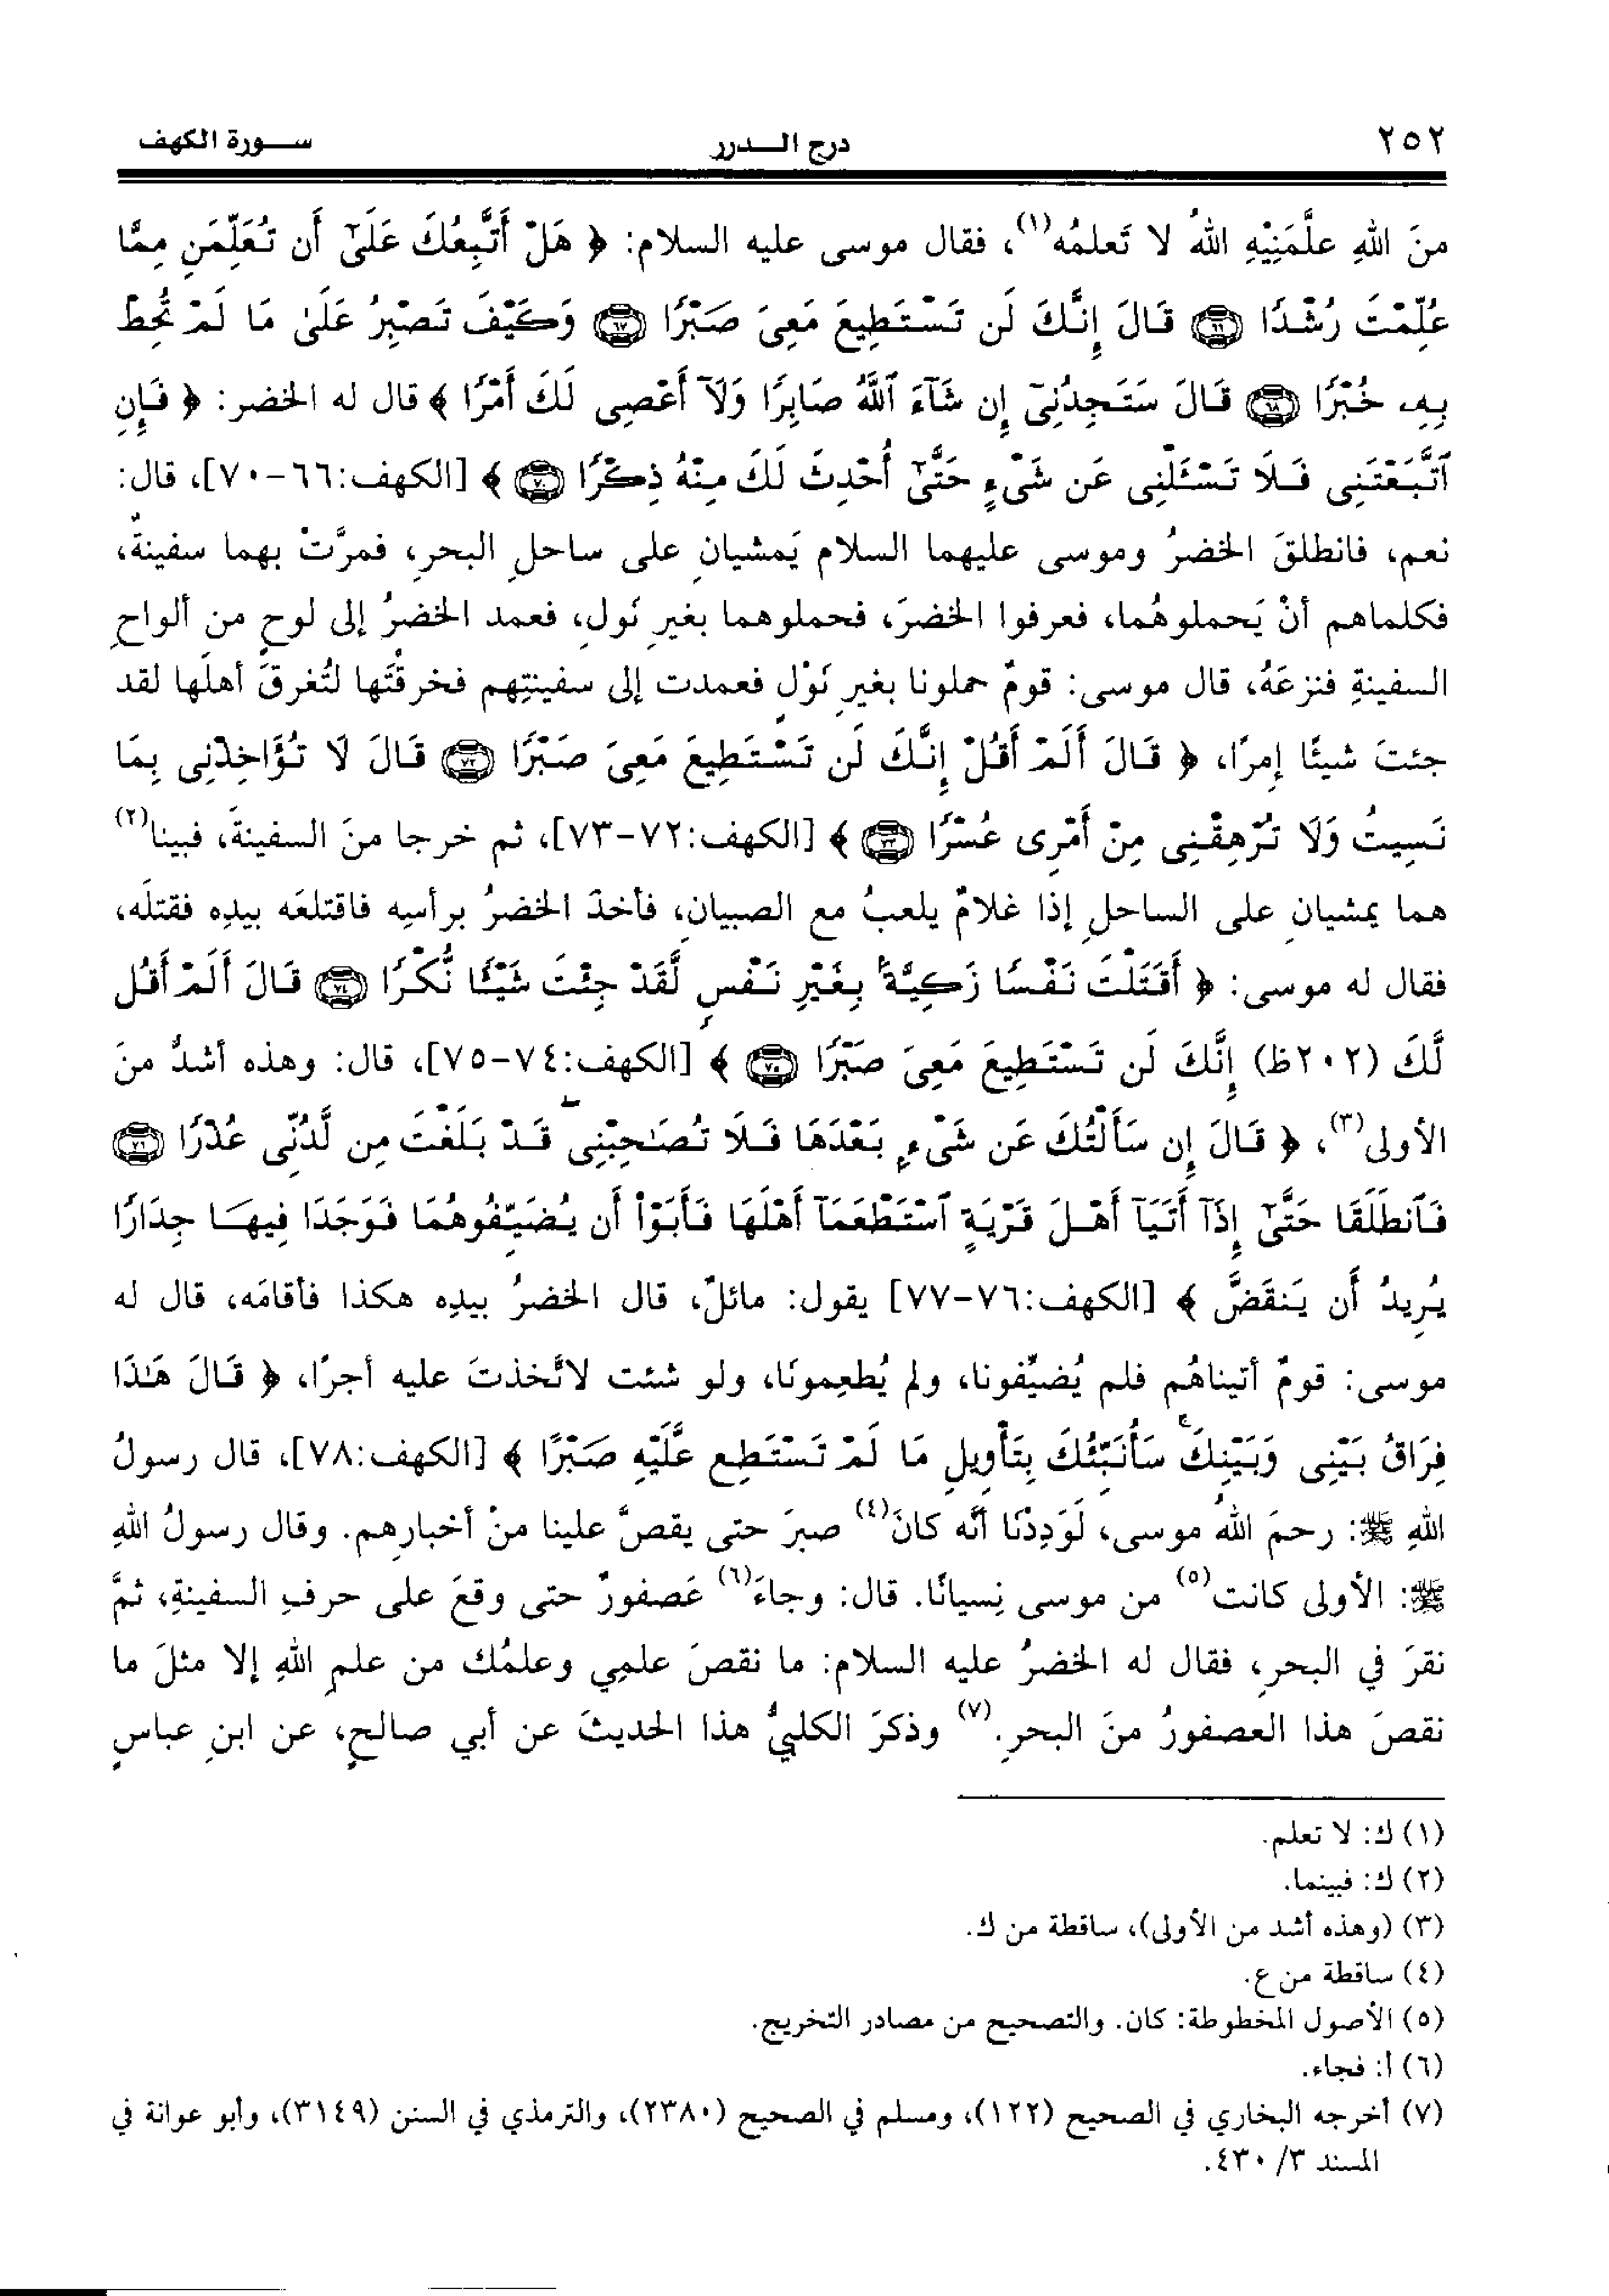 ٢٥٢ درج الـــدرر ســـورة الكهف
منَ اللهِ علَّمَنِيْهِ اللهُ لا تَعلمُه(١)، فقال موسى عليه السلام: ﴿ هَلْ أَتَّبِعُكَ عَلَىٰٓ أَن تُعَلِّمَنِ مِمَّا
عُلِّمْتَ رُشْدًا ۝٦٦ قَالَ إِنَّكَ لَن تَسْتَطِيعَ مَعِىَ صَبْرًا ۝٦٧ وَكَيْفَ تَصْبِرُ عَلَىٰ مَا لَمْ تُحِطْ
بِهِۦ خُبْرًا ۝٦٨ قَالَ سَتَجِدُنِىٓ إِن شَآءَ ٱللَّهُ صَابِرًا وَلَآ أَعْصِى لَكَ أَمْرًا ﴾ قال له الخضر: ﴿ فَإِنِ
ٱتَّبَعْتَنِى فَلَا تَسْـَٔلْنِى عَن شَىْءٍ حَتَّىٰٓ أُحْدِثَ لَكَ مِنْهُ ذِكْرًا ۝٧٠ ﴾ [الكهف:٦٦-٧٠]، قال:
نعم، فانطلقَ الخضرُ وموسى عليهما السلام يَمشيانِ على ساحلِ البحرِ، فمرَّتْ بهما سفينةٌ،
فكلماهم أنْ يَحملوهُما، فعرفوا الخضرَ، فحملوهما بغيرِ نَولٍ، فعمد الخضرُ إلى لوحٍ من ألواحِ
السفينةِ فنزعَهُ، قال موسى: قومٌ حملونا بغيرِ نَوْلٍ فعمدت إلى سفينتِهم فخرقْتَها لتُغرقَ أهلَها لقد
جئتَ شيئًا إمرًا، ﴿ قَالَ أَلَمْ أَقُلْ إِنَّكَ لَن تَسْتَطِيعَ مَعِىَ صَبْرًا ۝٧٢ قَالَ لَا تُؤَاخِذْنِى بِمَا
نَسِيتُ وَلَا تُرْهِقْنِى مِنْ أَمْرِى عُسْرًا ۝٧٣ ﴾ [الكهف:٧٢-٧٣]، ثم خرجا منَ السفينةَ، فبينا(٢)
هما يمشيانِ على الساحلِ إذا غلامٌ يلعبُ مع الصبيانِ، فأخذَ الخضرُ برأسِه فاقتلعَه بيدِه فقتلَه،
فقال له موسى: ﴿ أَقَتَلْتَ نَفْسًا زَكِيَّةًۢ بِغَيْرِ نَفْسٍ لَّقَدْ جِئْتَ شَيْـًٔا نُّكْرًا ۝٧٤ قَالَ أَلَمْ أَقُل
لَّكَ (٢٠٢ظ) إِنَّكَ لَن تَسْتَطِيعَ مَعِىَ صَبْرًا ۝٧٥ ﴾ [الكهف:٧٤-٧٥]، قال: وهذه أشدُّ منَ
الأولى(٣)، ﴿ قَالَ إِن سَأَلْتُكَ عَن شَىْءٍۭ بَعْدَهَا فَلَا تُصَـٰحِبْنِى ۖ قَدْ بَلَغْتَ مِن لَّدُنِّى عُذْرًا ۝٧٦
فَٱنطَلَقَا حَتَّىٰٓ إِذَآ أَتَيَآ أَهْلَ قَرْيَةٍ ٱسْتَطْعَمَآ أَهْلَهَا فَأَبَوْا۟ أَن يُضَيِّفُوهُمَا فَوَجَدَا فِيهَا جِدَارًا
يُرِيدُ أَن يَنقَضَّ ﴾ [الكهف:٧٦-٧٧] يقول: مائلٌ، قال الخضرُ بيدِه هكذا فأقامَه، قال له
موسى: قومٌ أتيناهُم فلم يُضيِّفونا، ولم يُطعِمونَا، ولو شئت لاتَّخذتَ عليه أجرًا، ﴿ قَالَ هَـٰذَا
فِرَاقُ بَيْنِى وَبَيْنِكَ ۚ سَأُنَبِّئُكَ بِتَأْوِيلِ مَا لَمْ تَسْتَطِع عَّلَيْهِ صَبْرًا ﴾ [الكهف:٧٨]، قال رسولُ
اللهِ ﷺ: رحمَ اللهُ موسى، لَوَدِدْنَا أنَّه كانَ(٤) صبرَ حتى يقصَّ علينا منْ أخبارِهم. وقال رسولُ اللهِ
ﷺ: الأولى كانت(٥) من موسى نِسيانًا. قال: وجاءَ(٦) عَصفورٌ حتى وقعَ على حرفِ السفينةِ، ثمَّ
نقرَ في البحرِ، فقال له الخضرُ عليه السلام: ما نقصَ علمِي وعلمُك من علمِ اللهِ إلا مثلَ ما
نقصَ هذا العصفورُ منَ البحرِ.(٧) وذكرَ الكلبيُّ هذا الحديثَ عن أبي صالحٍ، عن ابنِ عباسٍ
(١) ك: لا تعلم.
(٢) ك: فبينما.
(٣) (وهذه أشد من الأولى)، ساقطة من ك.
(٤) ساقطة من ع.
(٥) الأصول المخطوطة: كان. والتصحيح من مصادر التخريج.
(٦) أ: فجاء.
(٧) أخرجه البخاري في الصحيح (١٢٢)، ومسلم في الصحيح (٢٣٨٠)، والترمذي في السنن (٣١٤٩)، وأبو عوانة في
المسند ٣/ ٤٣٠.